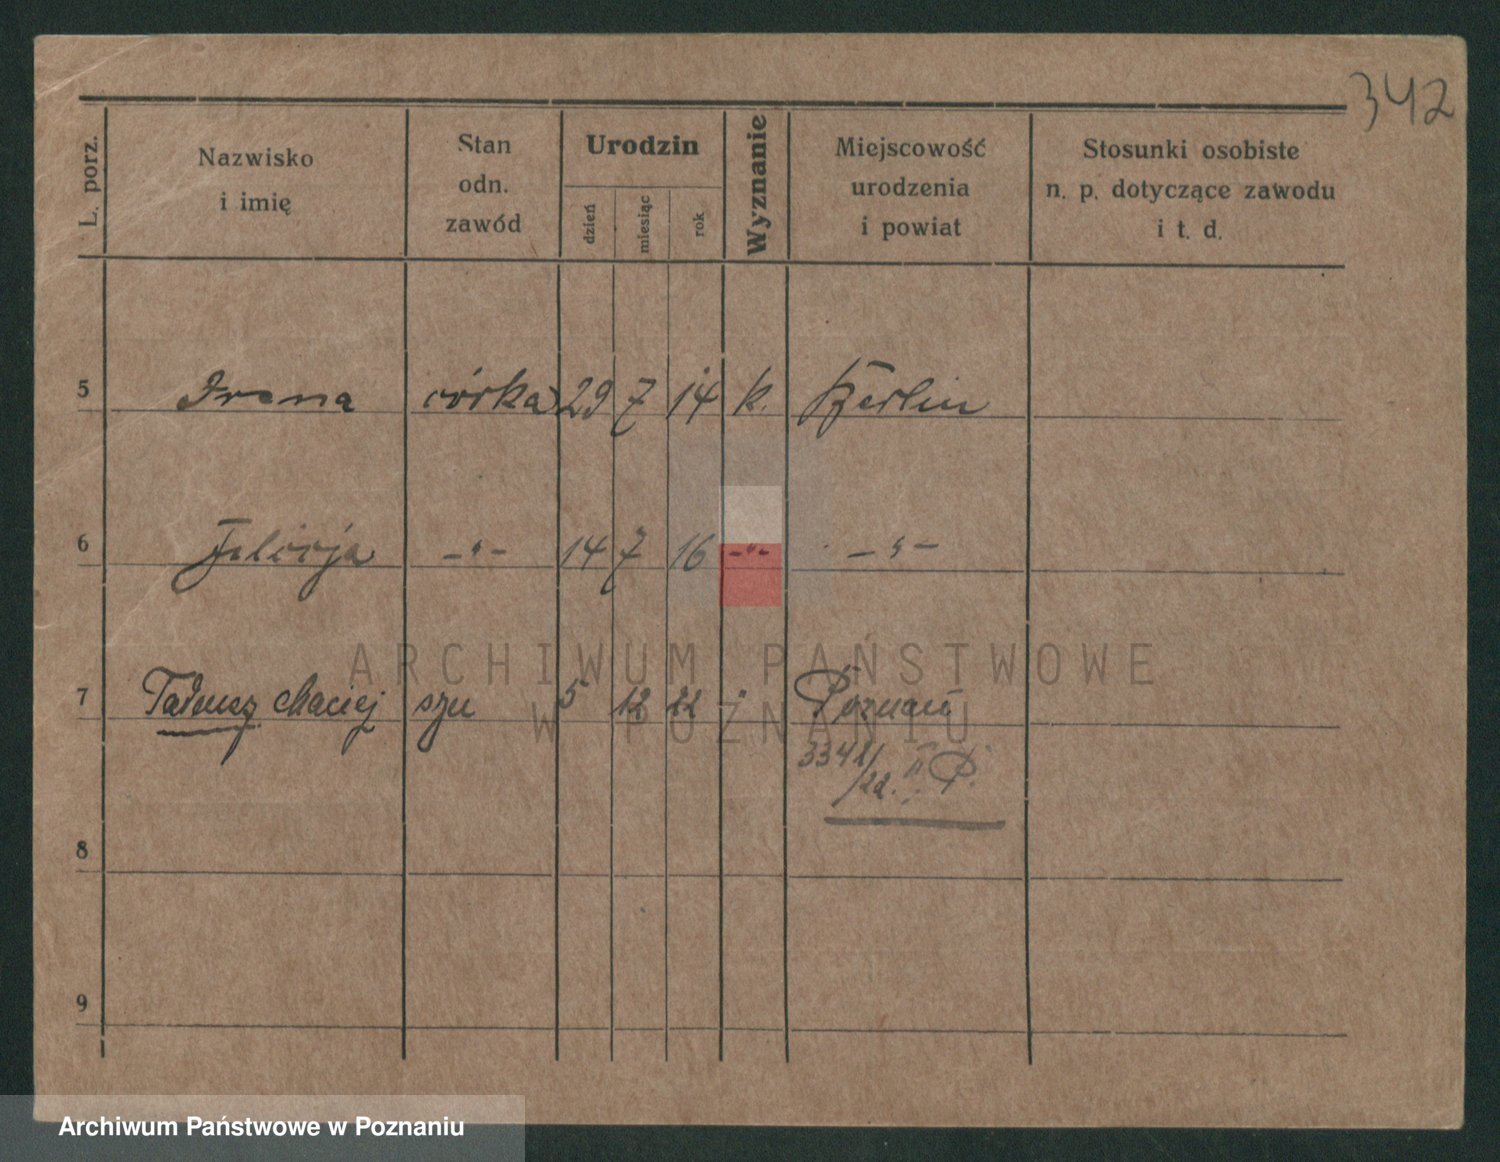 342
L. porz.
Nazwisko
i imię
Stan
odn.
zawód
Urodzin
dzień
miesiąc
rok
Wyznanie
Miejscowość
urodzenia
i powiat
Stosunki osobiste
n. p. dotyczące zawodu
i t. d.
5 Irena córka 29 7 14 k. Berlin
6 Felicja -"- 14 7 16 -"- -"-
7 Tadeusz Maciej syn 5 12 22 " Poznań
3342/
/22. II P.
8
9
ARCHIWUM PAŃSTWOWE
W POZNANIU
Archiwum Państwowe w Poznaniu